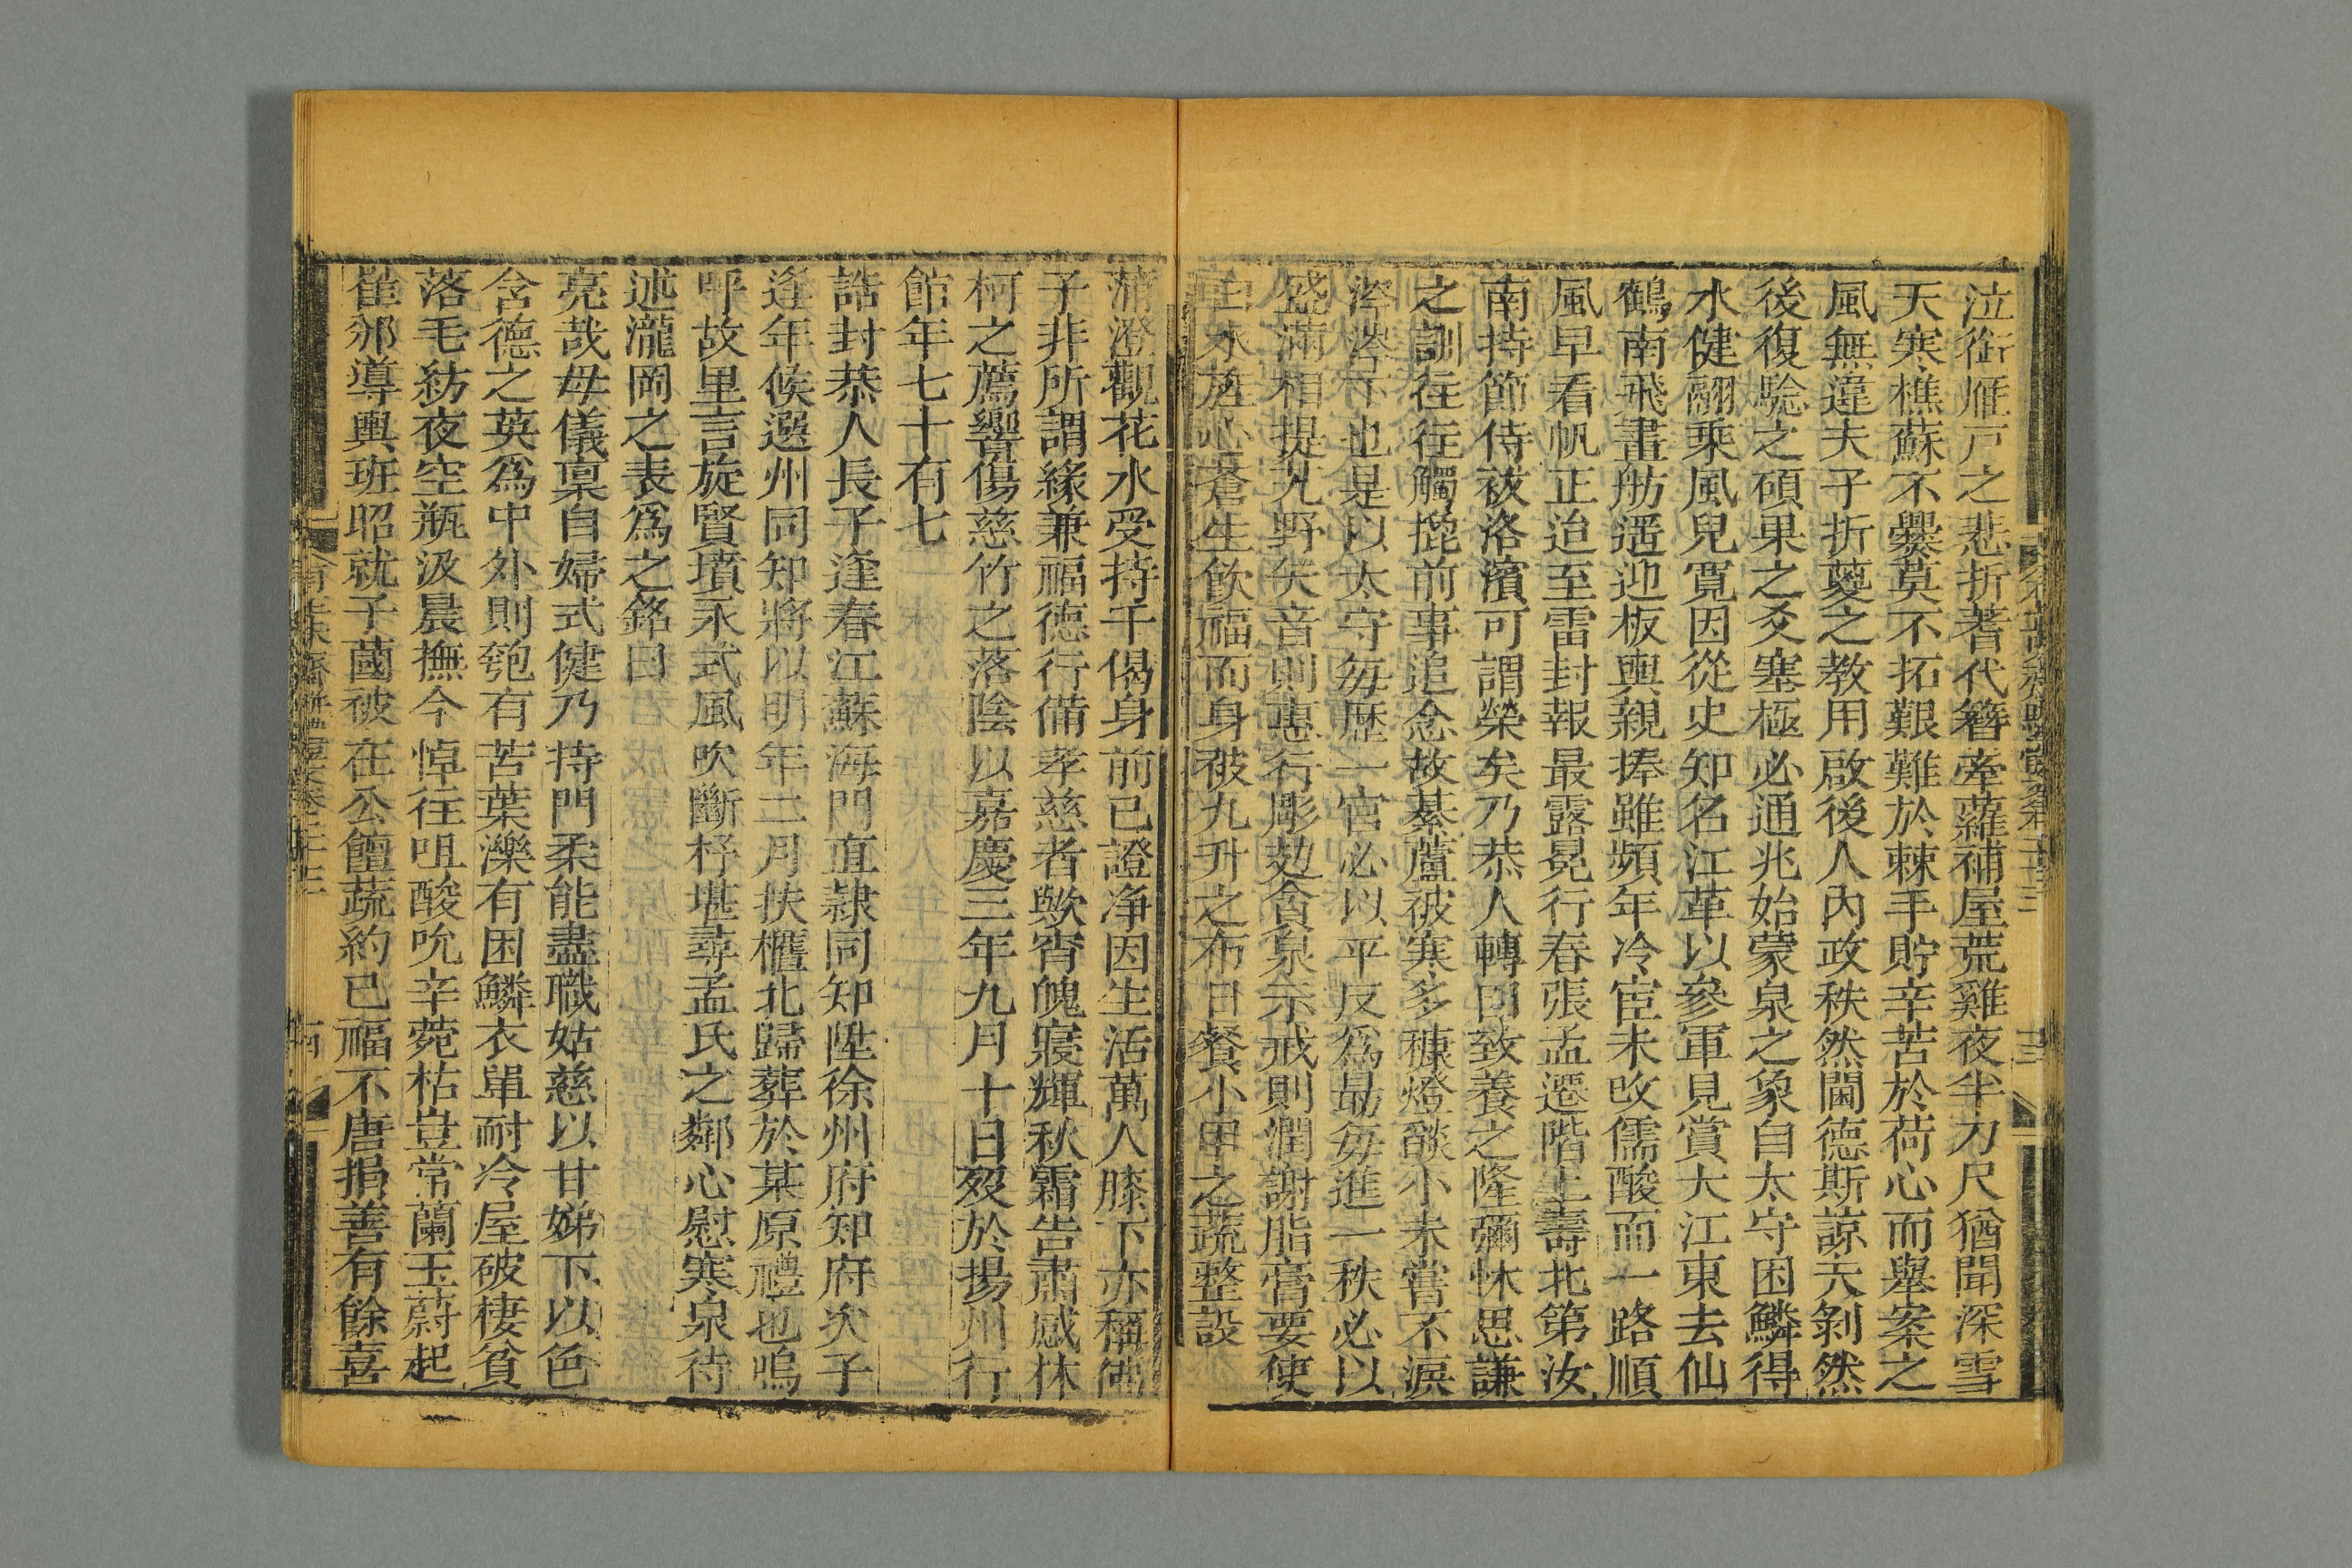 泣銜雁戸之悲折著代簪牽蘿補屋荒雞夜半刀尺猶聞深雪
天寒樵蘇不爨莫不拓艱難於棘手貯辛苦於荷心而舉案之
風無違夫子折葼之教用啟後人內政秩然閫德斯諒夫剝然
後復驗之碩果之爻塞極必通兆始蒙泉之象自太守困鱗得
水健翮乘風皃寬因從史知名江革以參軍見賞大江東去仙
鶴南飛畫舫遥迎板輿親捧雖頻年冷宦未改儒酸而一路順
風早看帆正迨至雷封報最露冕行春張孟遷階上壽北第汝
南持節侍袚洛濱可謂榮矣乃恭人轉因致養之隆彌怵思謙
之訓往往觸摐前事追念故綦蘆被寒多穅燈燄小未嘗不淚
涔涔下也是以太守每歷一官必以平反爲最每進一秩必以
盛滿相提九野矢音則惠行彫勊貪泉示戒則潤謝脂膏要使
白水旌心蒼生飲福而身被九升之布日餐小甲之蔬整設
蒲澄觀花水受持千偈身前已證净因生活萬人膝下亦稱佛
子非所謂緣兼福德行備孝慈者歟宵魄寢輝秋霜告肅感林
柯之薦響傷慈竹之落陰以嘉慶三年九月十日歿於揚州行
館年七十有七
誥封恭人長子逢春江蘇海門直隸同知陞徐州府知府次子
逢年候選州同知將以明年二月扶櫬北歸葬於某原禮也嗚
呼故里言旋賢墳永式風吹斷杼堪尋孟氏之鄰心慰寒泉待
述瀧岡之表爲之銘曰
亮哉母儀稟自婦式健乃持門柔能盡職姑慈以甘娣下以色
含德之英爲中外則匏有苦葉濼有困鱗衣單耐冷屋破棲貧
落毛紡夜空瓶汲晨撫今悼往咀酸吮辛菀枯豈常蘭玉蔚起
崔邠導輿班昭就子菌被在公饘蔬約己福不唐捐善有餘喜